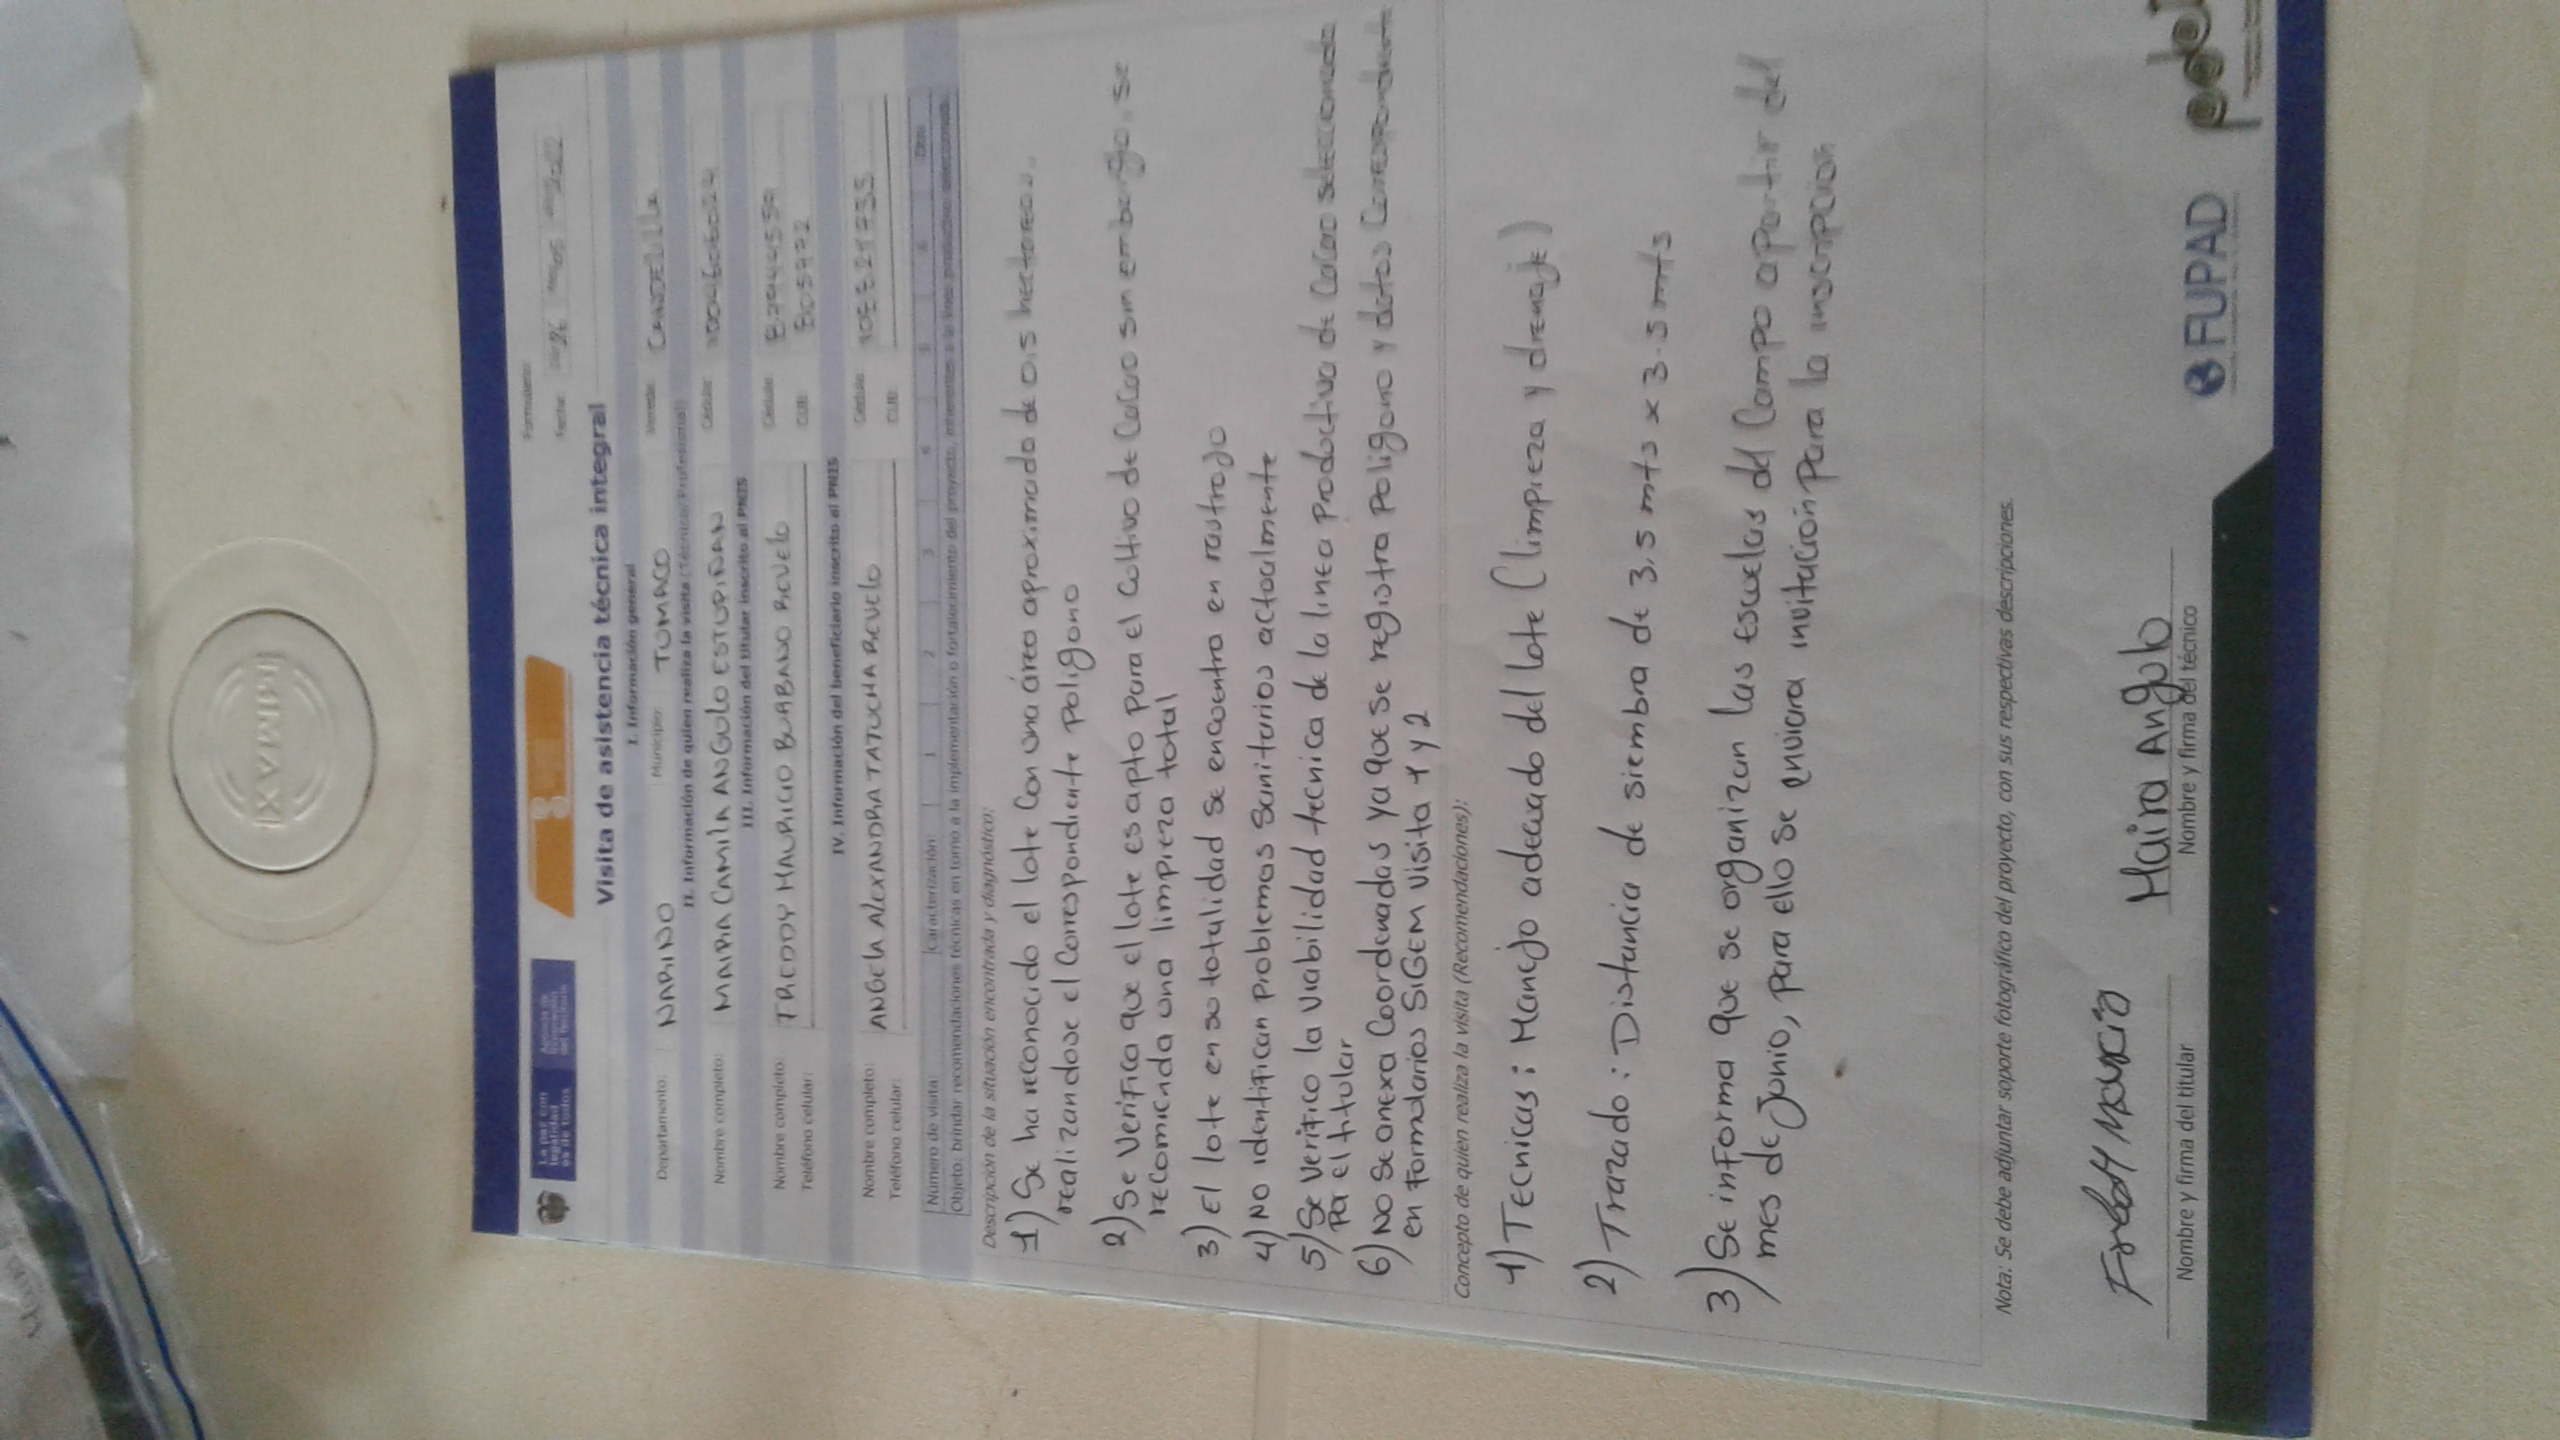 La paz con
legalidad
es de todos
Agencia de
Renovación
del Territorio
Formulario:
Fecha: 26 05 2022
Visita de asistencia técnica integral
I. Información general
Departamento: NARIÑO Municipio: TUMACO Vereda: CANDELILLA
II. Información de quien realiza la visita (Técnico/ Profesional)
Nombre completo: MAIRA CAMILA ANGULO ESTUPIÑAN Cédula:
III. Información del titular inscrito al PNIS
Nombre completo: FREDDY MAURICIO BURBANO REVELO Cédula:
Teléfono celular: CUB:
IV. Información del beneficiario inscrito al PNIS
Nombre completo: ANGELA ALEXANDRA TATUCHA REVELO Cédula:
Teléfono celular: CUB:
Número de visita: Caracterización: 1 2 3 4 5 6 Otra
Objeto: brindar recomendaciones técnicas en torno a la implementación o fortalecimiento del proyecto, inherentes a la línea productiva seleccionada.
Descripción de la situación encontrada y diagnóstico:
1) Se ha reconocido el lote Con una área aproximada de 0,5 hectareas,
realizandose el Correspondiente Poligono
2) Se Verifica que el lote es apto Para el Cultivo de Cacao sin embargo, se
recomienda una limpieza total
3) El lote en su totalidad se encuentra en rastrojo
4) No identifican Problemas Sanitarios actualmente
5) Se Verifico la Viabilidad tecnica de la linea Productiva de Cacao seleccionada
Por el titular
6) No Se anexa Coordenadas ya que se registra Poligono y datos Correspondiente
en Formularios SIGEM Visita 1 y 2
Concepto de quien realiza la visita (Recomendaciones):
1) Tecnicas: Manejo adecuado del lote (limpieza y drenaje)
2) Trazado: Distancia de siembra de 3.5 mts x 3.5 mts
3) Se informa que se organizan las escuelas del Campo apartir del
mes de Junio, Para ello se enviara invitación Para la inscripcion
Nota: Se debe adjuntar soporte fotográfico del proyecto, con sus respectivas descripciones.
Maira Angulo
Nombre y firma del titular Nombre y firma del técnico
FUPAD